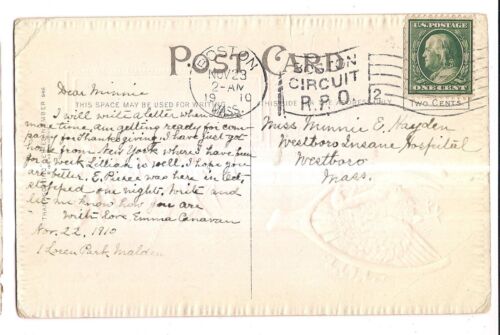 POST CARD
BOSTON
NOV 23
2-AM
1910
MASS.
BOSTON
CIRCUIT
R.P.O.
2
U.S. POSTAGE
ONE CENT
TWO CENTS
THIS SPACE MAY BE USED FOR
Dear Minnie
I will write a letter when
more time. Am getting ready for com-
pany for thanksgiving. I have just got
home from New York where I have been
for a week Lillian is well. I hope you
are better. E. Pierce was here in Oct.
stopped one night. Write and
let me know how you are
With love Emma Canavan
Nov. 22, 1910
1 Loren Park, Malden
Miss Minnie E. Hayden
Westboro Insane Hospital
Westboro
Mass.